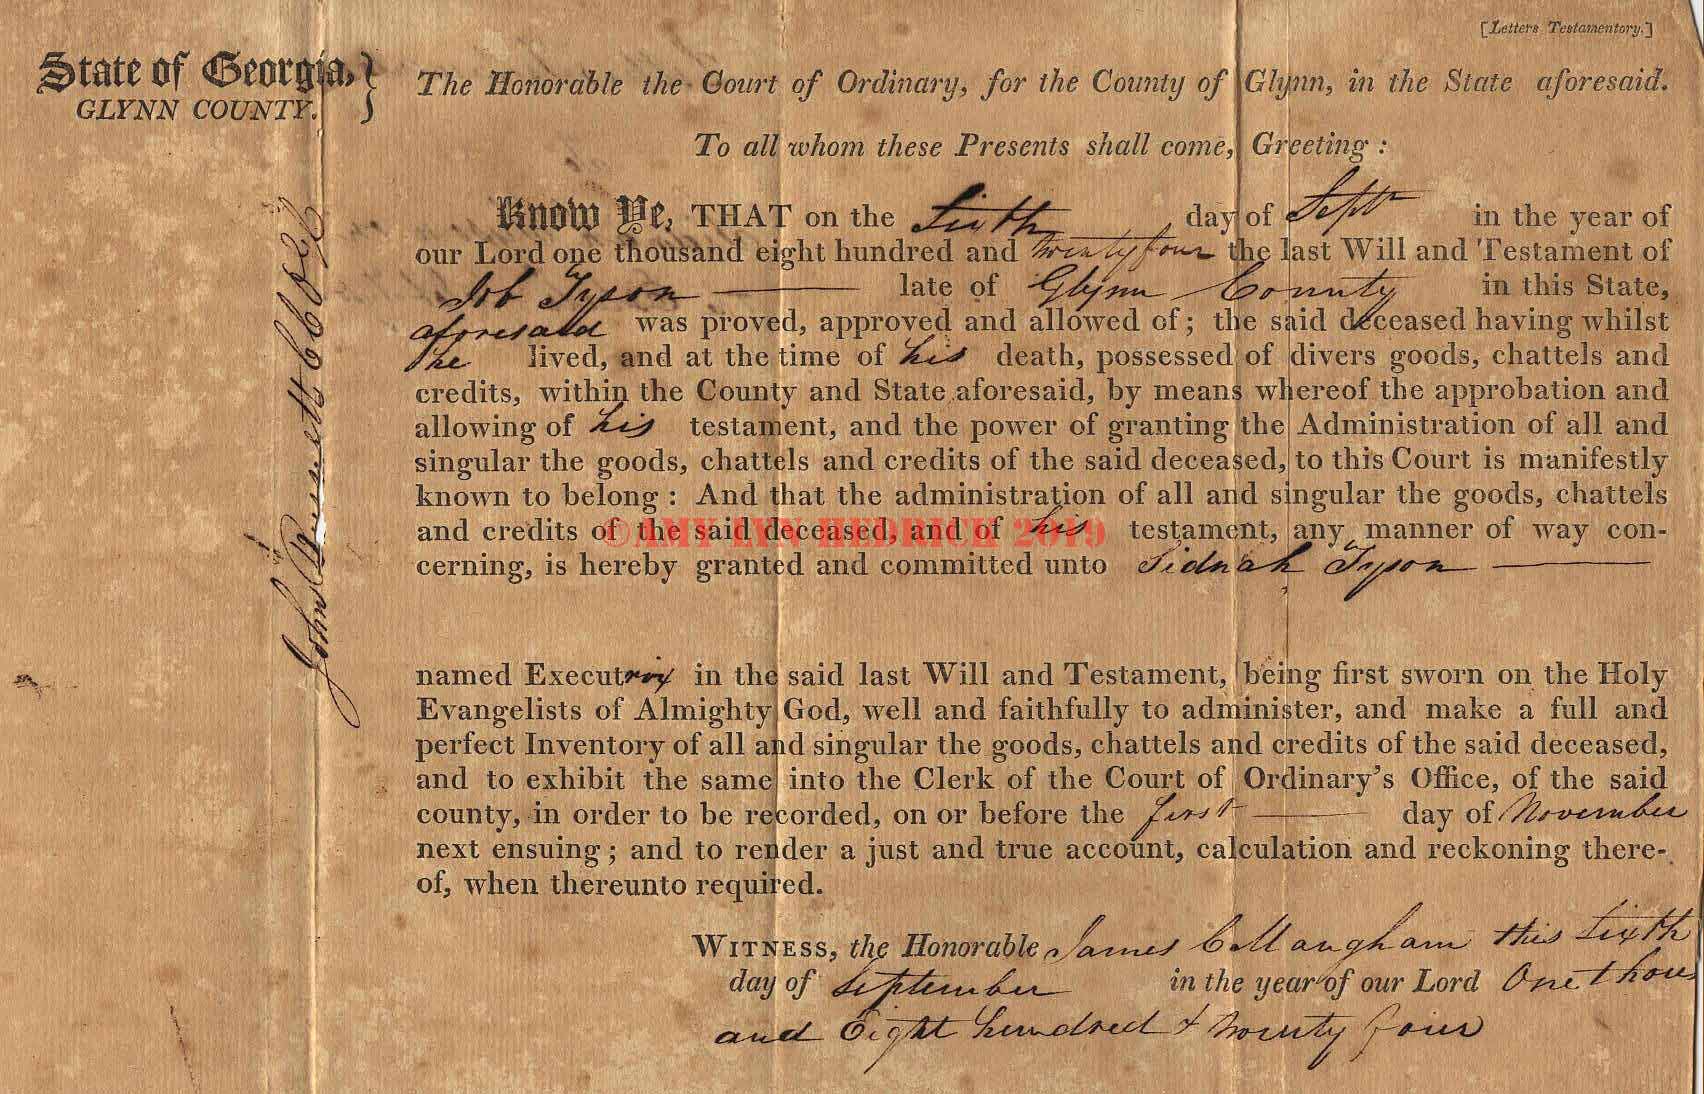 [Letters Testamentory.]
State of Georgia,
GLYNN COUNTY.
The Honorable the Court of Ordinary, for the County of Glynn, in the State aforesaid.
To all whom these Presents shall come, Greeting :
Know Ye, THAT on the Sixth day of Septr in the year of
our Lord one thousand eight hundred and twenty four the last Will and Testament of
Job Tyson late of Glynn County in this State,
aforesaid was proved, approved and allowed of ; the said deceased having whilst
he lived, and at the time of his death, possessed of divers goods, chattels and
credits, within the County and State aforesaid, by means whereof the approbation and
allowing of his testament, and the power of granting the Administration of all and
singular the goods, chattels and credits of the said deceased, to this Court is manifestly
known to belong : And that the administration of all and singular the goods, chattels
and credits of the said deceased, and of his testament, any manner of way con-
cerning, is hereby granted and committed unto Sidnah Tyson
named Executrix in the said last Will and Testament, being first sworn on the Holy
Evangelists of Almighty God, well and faithfully to administer, and make a full and
perfect Inventory of all and singular the goods, chattels and credits of the said deceased,
and to exhibit the same into the Clerk of the Court of Ordinary's Office, of the said
county, in order to be recorded, on or before the first day of November
next ensuing ; and to render a just and true account, calculation and reckoning there-
of, when thereunto required.
WITNESS, the Honorable James C Mangham this Sixth
day of September in the year of our Lord One thous
and Eight hundred & twenty four
John Burnett
©AMY LYN HEDRICK 2019